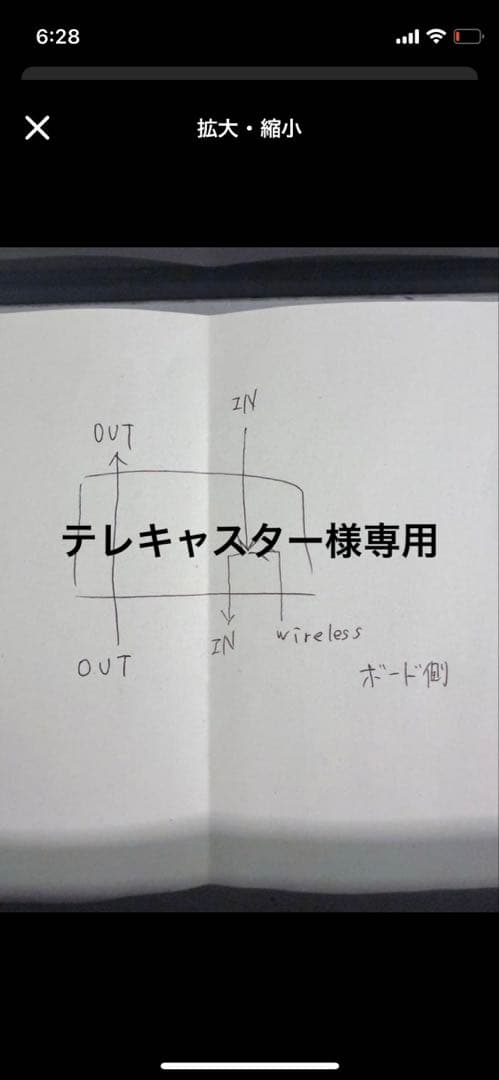 6:28
拡大・縮小
IN
OUT
テレキャスター様専用
IN
wireless
OUT
ボード側